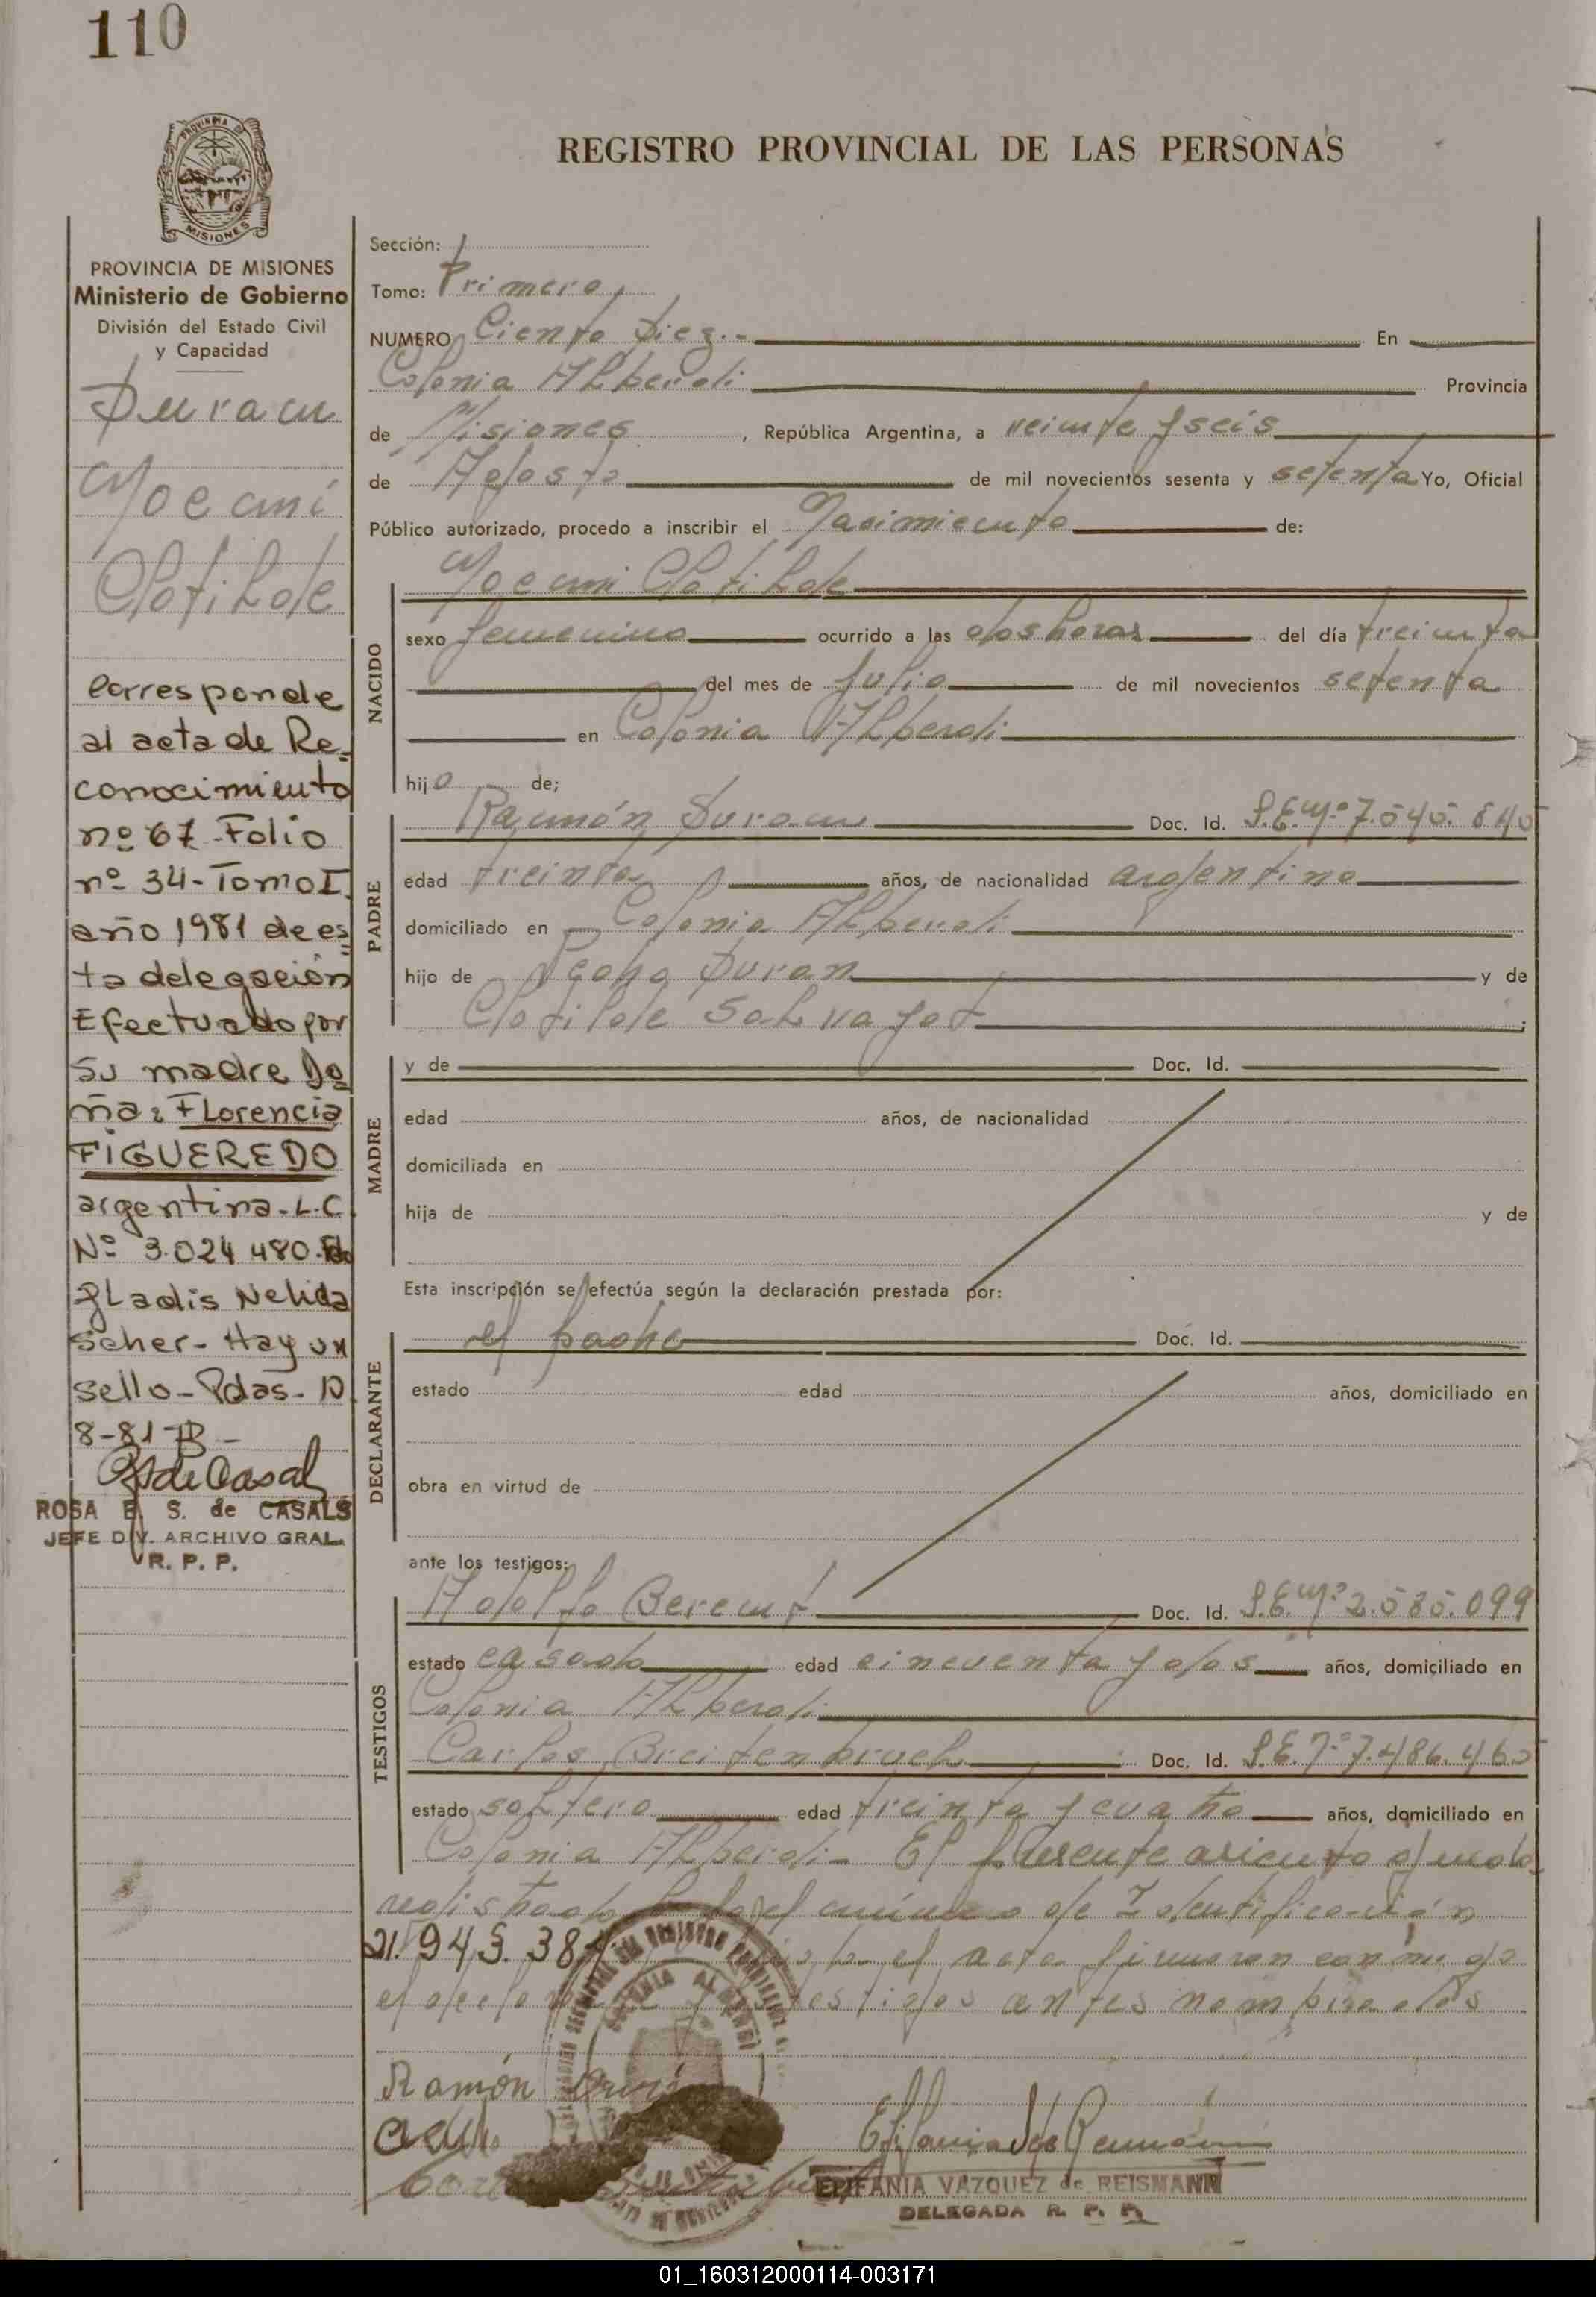 110
PROVINCIA
MISIONES
REGISTRO PROVINCIAL DE LAS PERSONAS
PROVINCIA DE MISIONES
Ministerio de Gobierno
División del Estado Civil
y Capacidad
Duran
Noemi
Clotilde
Corresponde
al acta de Re-
conocimiento
nº 67 - Folio
nº 34 - Tomo I
año 1981 de es
ta delegación
Efectuado por
Su madre Do
ña: Florencia
FIGUEREDO
argentina - L.C
Nº 3.024 480. Fdo
Gladis Nelida
Scher - Hay un
sello - Pdas - 10
8-81
ROSA E. S. de CASALS
JEFE DIV. ARCHIVO GRAL.
R. P. P.
Sección: 1
Tomo: Primero
NUMERO Ciento Diez.- En
Colonia Alberdi Provincia
de Misiones, República Argentina, a veinte y seis
de Agosto de mil novecientos sesenta y setenta Yo, Oficial
Público autorizado, procedo a inscribir el Nacimiento de:
NACIDO
Noemi Clotilde
sexo femenino ocurrido a las dos horas del día treinta
del mes de Julio de mil novecientos setenta
en Colonia Alberdi
hija de;
PADRE
Ramón Duran Doc. Id. L.E. Nº 7.545.
edad treinta años, de nacionalidad argentina
domiciliado en Colonia Alberdi
hijo de Pedro Duran y de
Clotilde ;
MADRE
y de Doc. Id.
edad años, de nacionalidad
domiciliada en
hija de y de
Esta inscripción se efectúa según la declaración prestada por:
DECLARANTE
el padre Doc. Id.
estado edad años, domiciliado en
obra en virtud de
ante los testigos:
TESTIGOS
Adolfo Berent Doc. Id. L.E. Nº 2.585.099
estado casado edad cincuenta y dos años, domiciliado en
Colonia Alberdi
Carlos Breitenbruch Doc. Id. L.E. Nº 7.486.465
estado soltero edad treinta y cuatro años, domiciliado en
Colonia Alberdi.- El presente asiento queda
registrado bajo el número de Identificación
21.945.38 el acta firmaron conmigo
el testigos antes nombrados
COLONIA ALBERDI
Ramón
EPIFANIA VAZQUEZ de REISMANN
DELEGADA R. P. P.
01_160312000114-003171